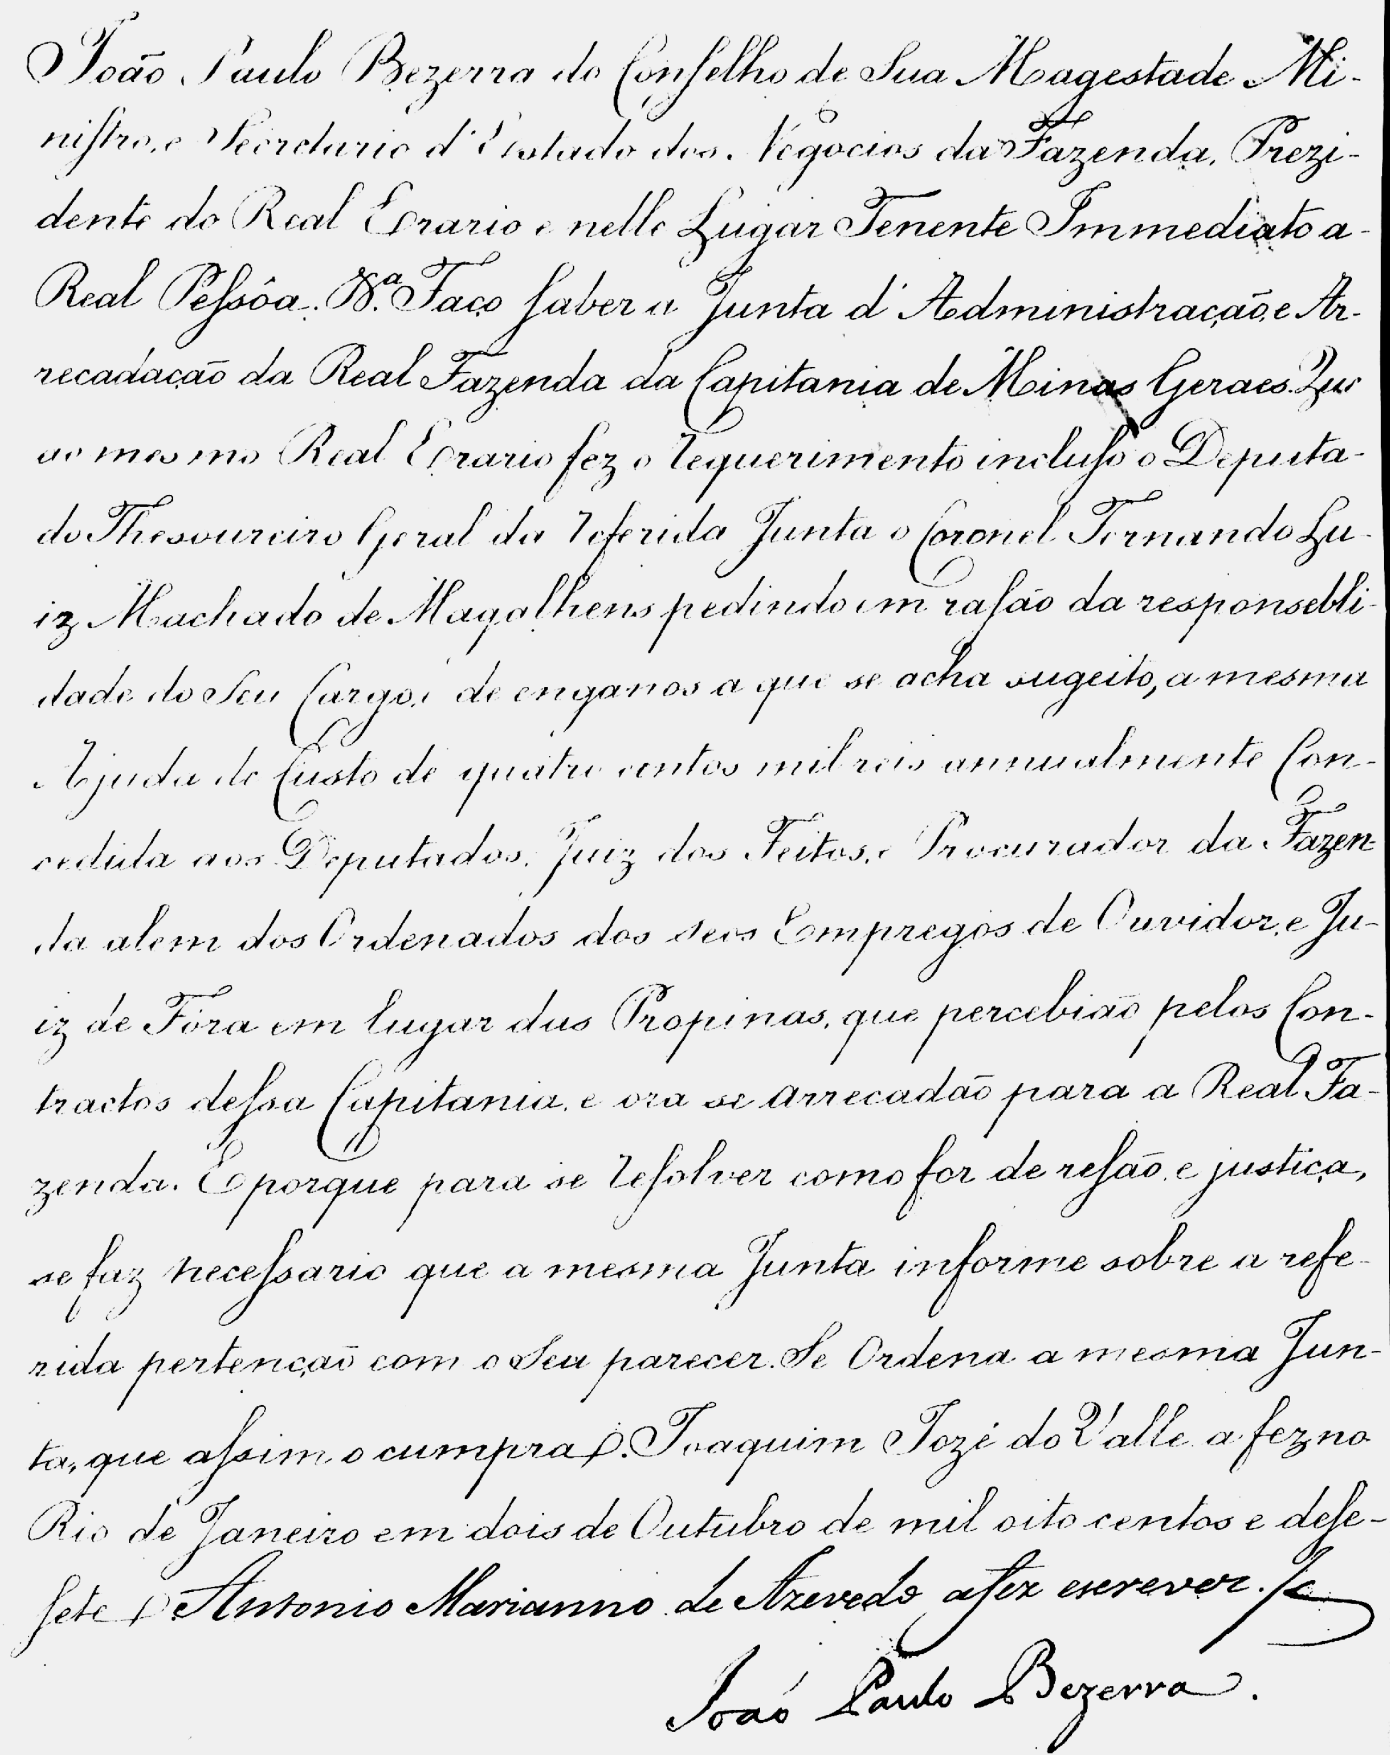 João Paulo Bezerra do Conselho de Sua Magestade Mi-
nistro, e Secretario d'Estado dos Negocios da Fazenda, Prezi-
dente do Real Erario e nelle Lugar Tenente Immediato a
Real Pessôa. &.ª Faço saber a Junta d'Administração, e Ar-
recadação da Real Fazenda da Capitania de Minas Geraes. Que
ao mesmo Real Erario fez o requerimento incluso o Deputa-
do Thesoureiro Geral da referida Junta o Coronel Fernando Lu-
iz Machado de Magalhens pedindo em rasão da responsebli-
dade do Seu Cargo, e de enganos a que se acha sugeito, a mesma
Ajuda de Custo de quatro centos mil reis annualmente Con-
cedida aos Deputados, Juiz dos Feitos, e Procurador da Fazen-
da alem dos Ordenados dos seos Empregos de Ouvidor, e Ju-
iz de Fóra em lugar das Propinas, que percebião pelos Con-
tractos dessa Capitania, e ora se arrecadão para a Real Fa-
zenda. E porque para se resolver como for de resão, e justiça,
se faz necessario que a mesma Junta informe sobre a refe-
rida pertenção com o Seu parecer. Se Ordena a mesma Jun-
ta, que assim o cumpra. Joaquim Jozé do Valle a fez no
Rio de Janeiro em dois de Outubro de mil oito centos e dese-
sete Antonio Marianno de Azevedo a fez escrever.
João Paulo Bezerra.